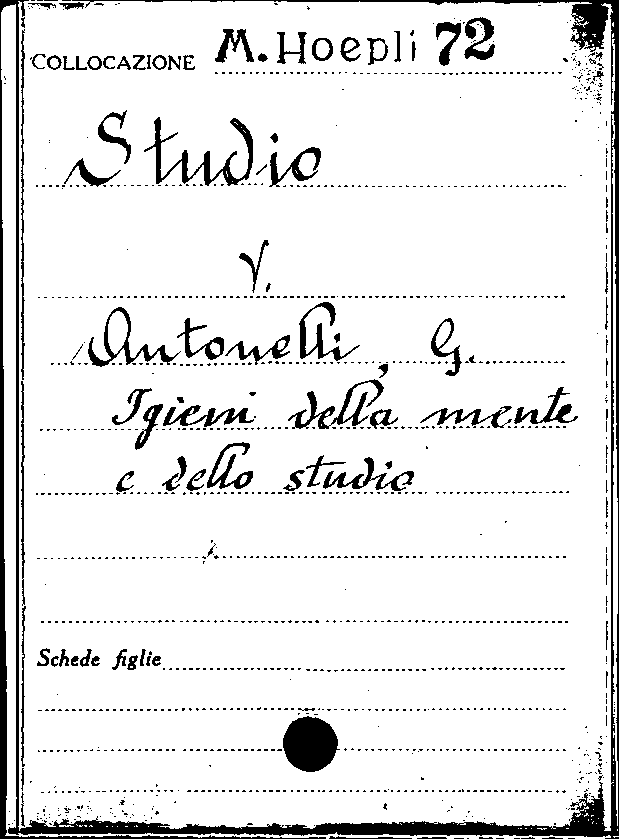 COLLOCAZIONE M. Hoepli 72
Studio
V.
Antonelli, G.
Igieni della mente
e dello studio
Schede figlie